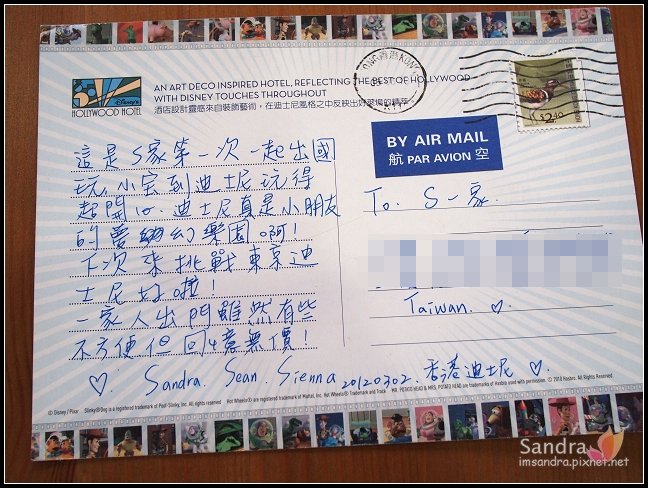 Disney's
HOLLYWOOD HOTEL
AN ART DECO INSPIRED HOTEL, REFLECTING THE BEST OF HOLLYWOOD
WITH DISNEY TOUCHES THROUGHOUT
酒店設計靈感來自裝飾藝術，在迪士尼風格之中反映出好萊塢的精萃
HONG KONG
$2.40
BY AIR MAIL
航 PAR AVION 空
這是S家第一次一起出國
玩,小宝到迪士尼玩得
超開心.迪士尼真是小朋友
的夢幻樂園啊!
下次來挑戰東京迪
士尼好啦!
一家人出門雖然有些
不方便但回憶無價!
♡ Sandra. Sean. Sienna 20120302. 香港迪士尼 ♡.
To. S一家.
Taiwan. ♡.
© Disney / Pixar Slinky® Dog is a registered trademark of Poof-Slinky, Inc. All rights reserved. Hot Wheels® are registered trademark of Mattel, Inc. Hot Wheels® Trademark and Track MR. POTATO HEAD & MRS. POTATO HEAD are trademarks of Hasbro used with permission. © 2010 Hasbro. All Rights Reserved.
Sandra
imsandra.pixnet.net